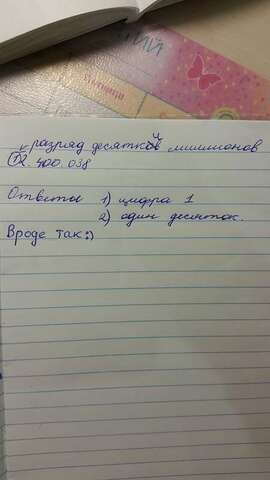 разряд десятков миллионов
12.400.038
Ответы 1) цифра 1
2) один десяток.
Вроде так:)